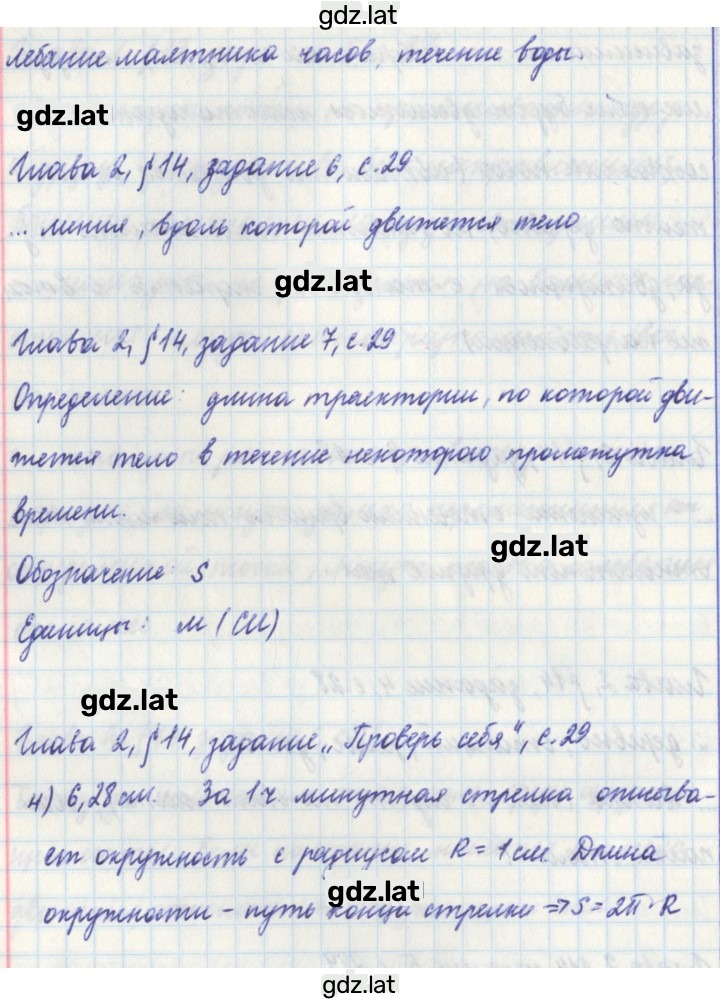 gdz.lat
лебание маятника часов, течение воды.
gdz.lat
Глава 2, §14, задание 6, с.29
... линия, вдоль которой движется тело
gdz.lat
Глава 2, §14, задание 7, с.29
Определение: длина траектории, по которой дви-
жется тело в течение некоторого промежутка
времени.
gdz.lat
Обозначение: S
Единицы: м (СИ)
gdz.lat
Глава 2, §14, задание „Проверь себя“, с.29
4) 6,28 см. За 1 ч минутная стрелка описыва-
ет окружность с радиусом R = 1 см. Длина
gdz.lat
окружности – путь конца стрелки => S = 2π·R
gdz.lat